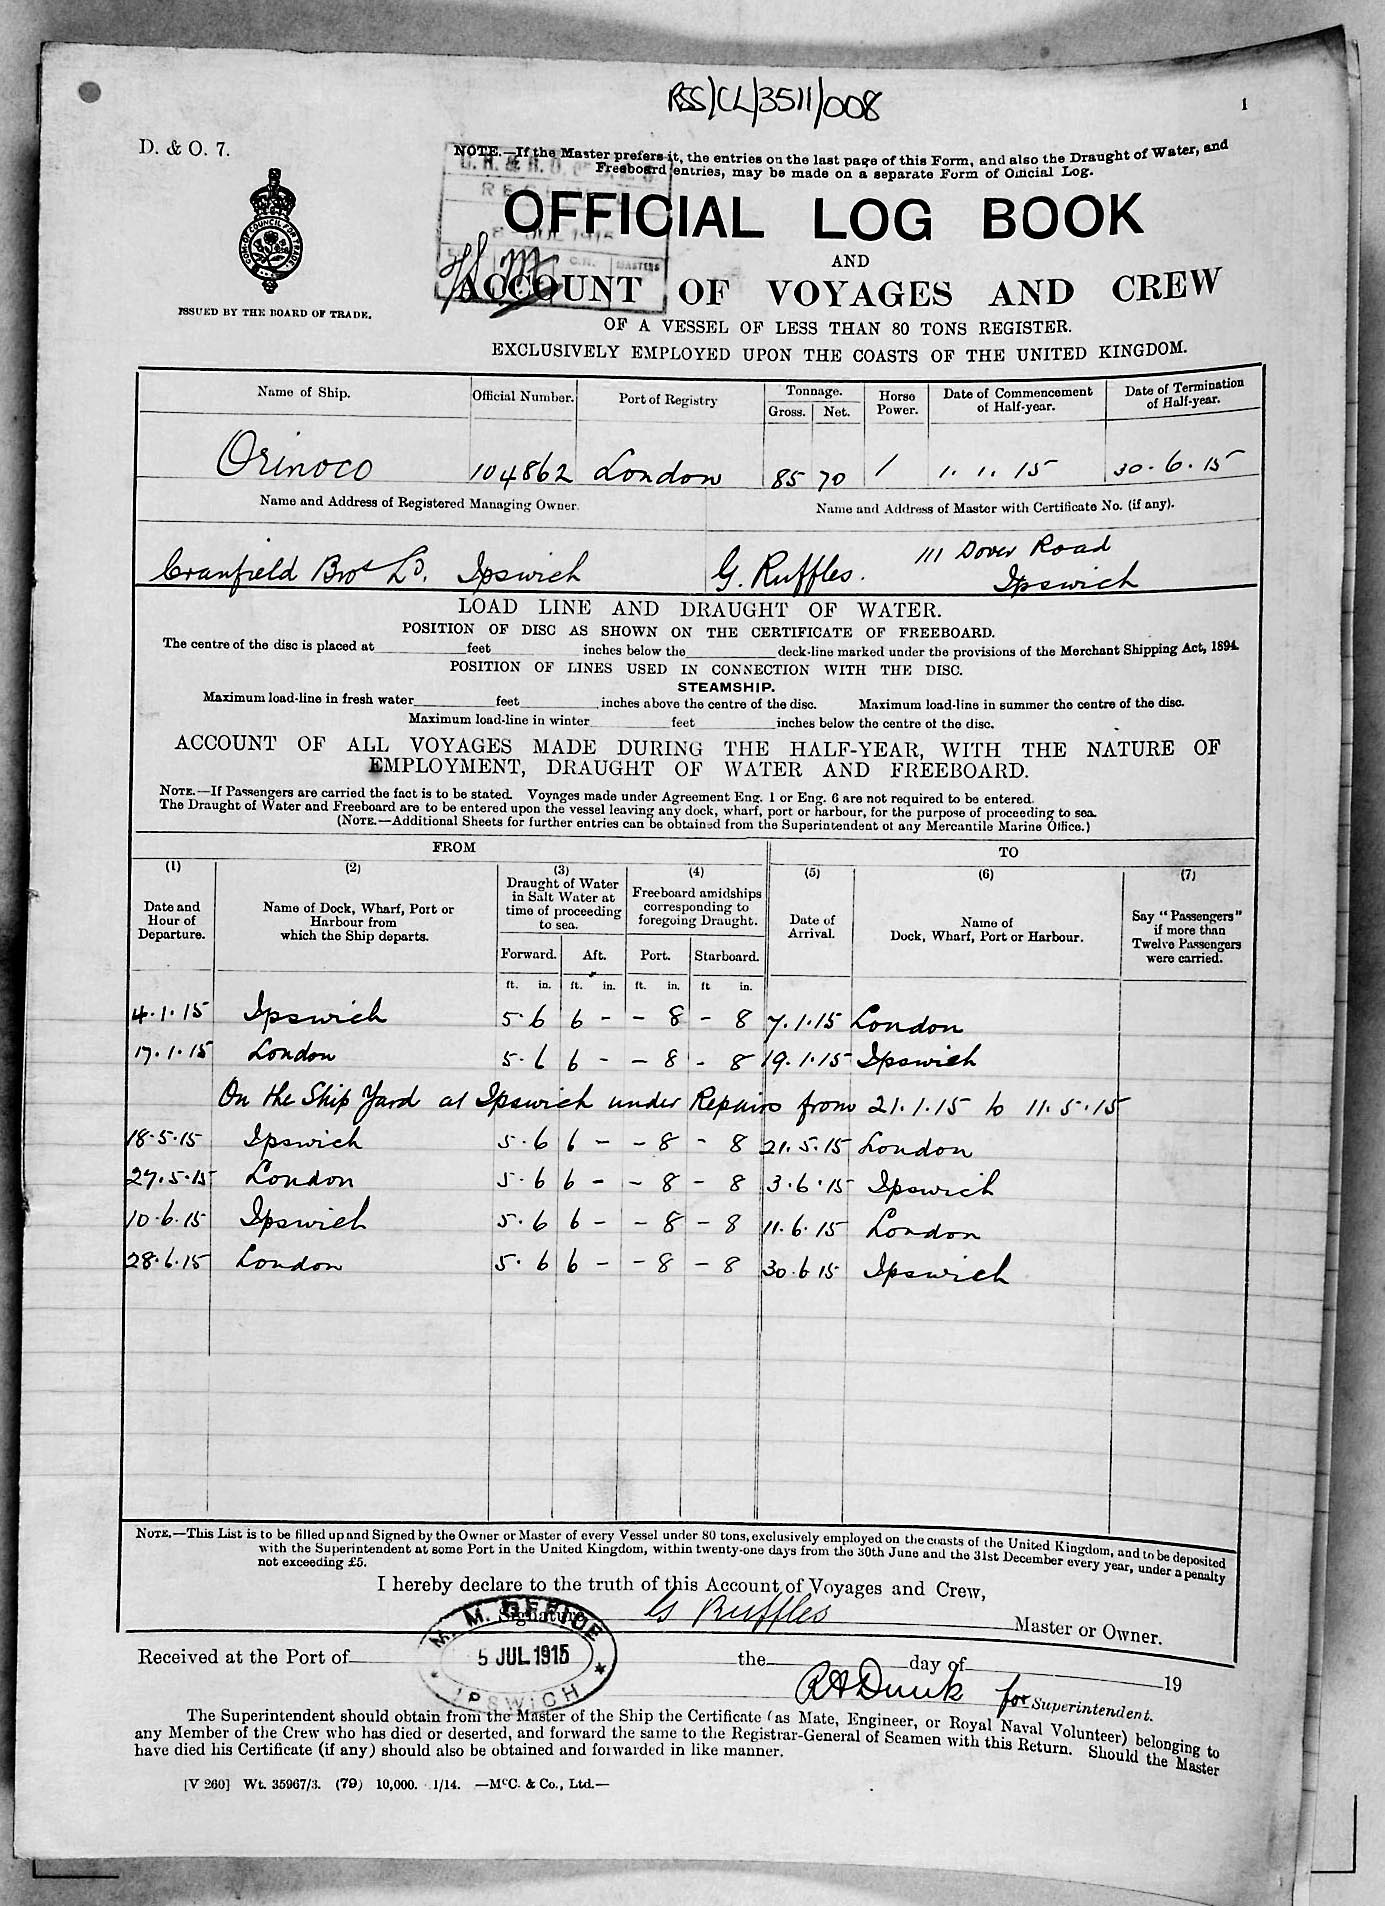 RSS/CL/3511/008
1
D. & O. 7.
NOTE.—If the Master prefers it, the entries on the last page of this Form, and also the Draught of Water, and
Freeboard entries, may be made on a separate Form of Official Log.
OFFICIAL LOG BOOK
AND
ACCOUNT OF VOYAGES AND CREW
OF A VESSEL OF LESS THAN 80 TONS REGISTER.
EXCLUSIVELY EMPLOYED UPON THE COASTS OF THE UNITED KINGDOM.
ISSUED BY THE BOARD OF TRADE.
MASTERS
Name of Ship. Official Number. Port of Registry Tonnage. Gross. Net. Horse Power. Date of Commencement of Half-year. Date of Termination of Half-year.
Orinoco 104862 London 85 70 / 1. 1. 15 30. 6. 15
Name and Address of Registered Managing Owner. Name and Address of Master with Certificate No. (if any).
Cranfield Bros Ld. Ipswich G. Ruffles. 111 Dover Road
Ipswich
LOAD LINE AND DRAUGHT OF WATER.
POSITION OF DISC AS SHOWN ON THE CERTIFICATE OF FREEBOARD.
The centre of the disc is placed at feet inches below the deck-line marked under the provisions of the Merchant Shipping Act, 1894.
POSITION OF LINES USED IN CONNECTION WITH THE DISC.
STEAMSHIP.
Maximum load-line in fresh water feet inches above the centre of the disc. Maximum load-line in summer the centre of the disc.
Maximum load-line in winter feet inches below the centre of the disc.
ACCOUNT OF ALL VOYAGES MADE DURING THE HALF-YEAR, WITH THE NATURE OF
EMPLOYMENT, DRAUGHT OF WATER AND FREEBOARD.
NOTE.—If Passengers are carried the fact is to be stated. Voyages made under Agreement Eng. 1 or Eng. 6 are not required to be entered.
The Draught of Water and Freeboard are to be entered upon the vessel leaving any dock, wharf, port or harbour, for the purpose of proceeding to sea.
(NOTE.—Additional Sheets for further entries can be obtained from the Superintendent of any Mercantile Marine Office.)
FROM TO
(1) (2) (3) (4) (5) (6) (7)
Date and Hour of Departure. Name of Dock, Wharf, Port or Harbour from which the Ship departs. Draught of Water in Salt Water at time of proceeding to sea. Freeboard amidships corresponding to foregoing Draught. Date of Arrival. Name of Dock, Wharf, Port or Harbour. Say "Passengers" if more than Twelve Passengers were carried.
Forward. Aft. Port. Starboard.
ft. in. ft. in. ft. in. ft in.
4.1.15 Ipswich 5.6 6 - - 8 - 8 7.1.15 London
17.1.15 London 5.6 6 - - 8 - 8 19.1.15 Ipswich
On the Ship Yard at Ipswich under Repairs from 21.1.15 to 11.5.15
18.5.15 Ipswich 5.6 6 - - 8 - 8 21.5.15 London
27.5.15 London 5.6 6 - - 8 - 8 3.6.15 Ipswich
10.6.15 Ipswich 5.6 6 - - 8 - 8 11.6.15 London
28.6.15 London 5.6 6 - - 8 - 8 30.6 15 Ipswich
NOTE.—This List is to be filled up and Signed by the Owner or Master of every Vessel under 80 tons, exclusively employed on the coasts of the United Kingdom, and to be deposited
with the Superintendent at some Port in the United Kingdom, within twenty-one days from the 30th June and the 31st December every year, under a penalty
not exceeding £5.
I hereby declare to the truth of this Account of Voyages and Crew,
Signature G Ruffles Master or Owner.
M. M. OFFICE
5 JUL 1915
IPSWICH
Received at the Port of the day of 19
for Superintendent.
The Superintendent should obtain from the Master of the Ship the Certificate (as Mate, Engineer, or Royal Naval Volunteer) belonging to
any Member of the Crew who has died or deserted, and forward the same to the Registrar-General of Seamen with this Return. Should the Master
have died his Certificate (if any) should also be obtained and forwarded in like manner.
[V 260] Wt. 35967/3. (79) 10,000. 1/14. —McC. & Co., Ltd.—